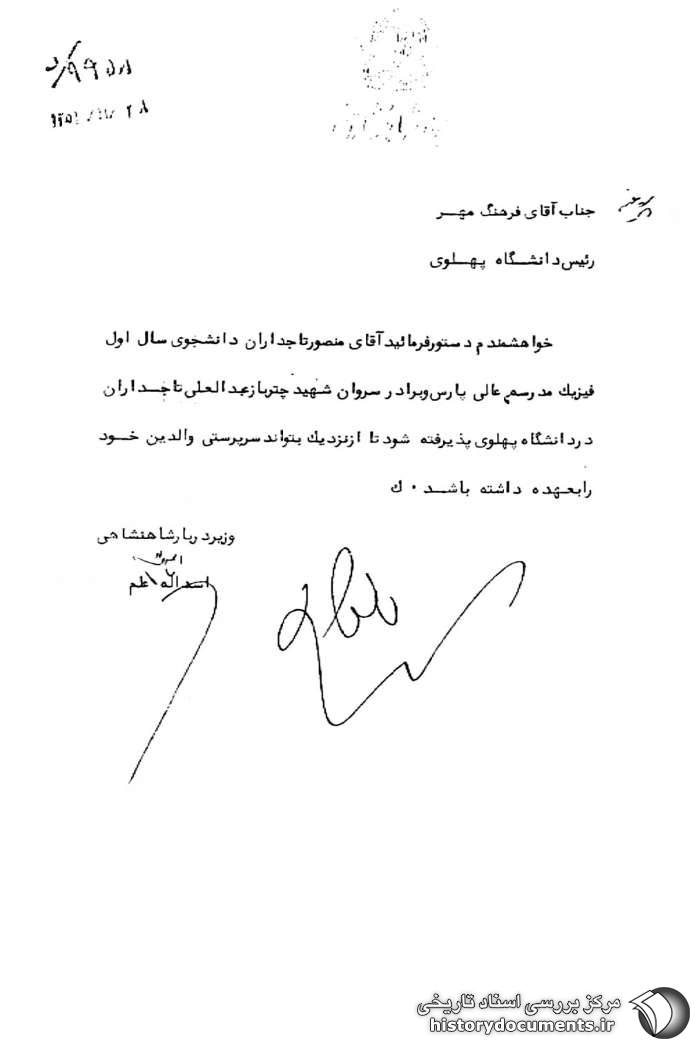 ۱۳۵۱/۱۱/۲۸
جناب آقای فرهنگ مهر
رئیس دانشگاه پهلوی
خواهشمندم دستور فرمائید آقای منصور تاجداران دانشجوی سال اول
فیزیک مدرسه عالی پارس و برادر سروان شهید چترباز عبدالعلی تاجداران
در دانشگاه پهلوی پذیرفته شود تا از نزدیک بتواند سرپرستی والدین خود
را بعهده داشته باشد ۰ ک
وزیر دربار شاهنشاهی
اسداله علم
مرکز بررسی اسناد تاریخی
historydocuments.ir